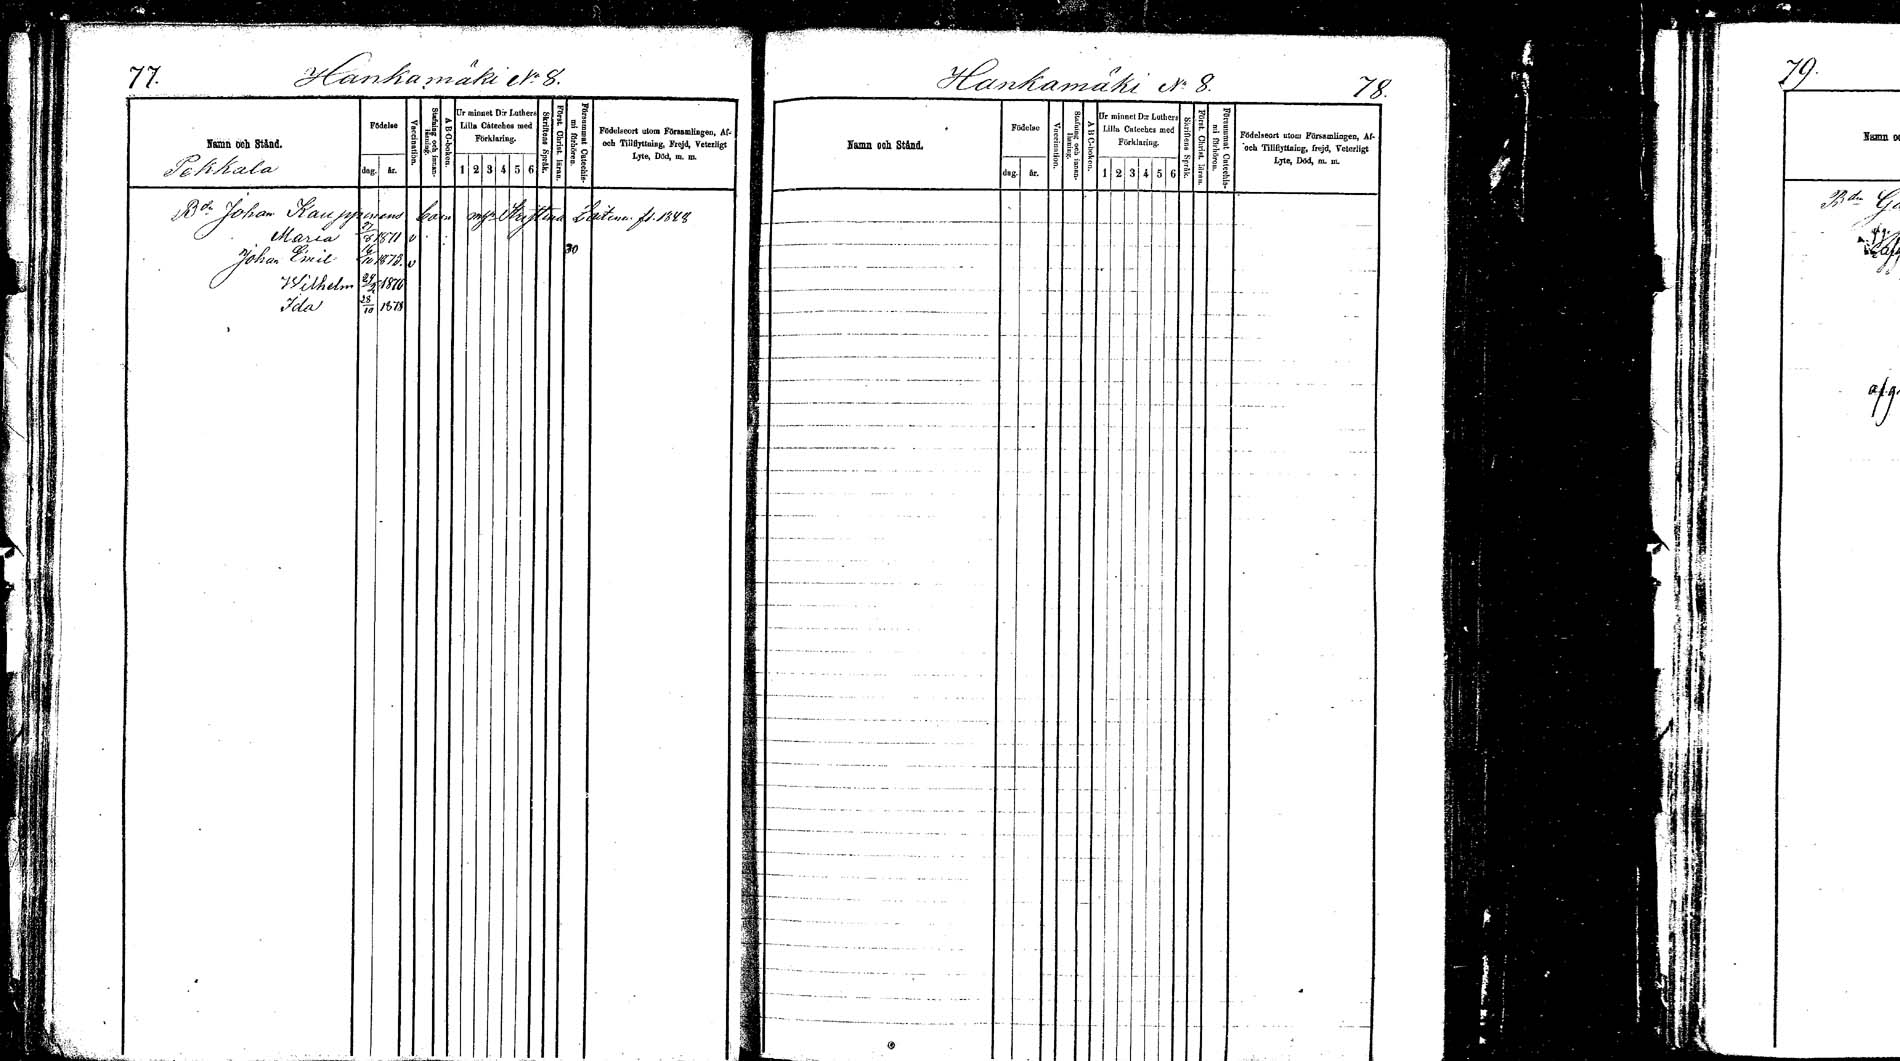 77. Hankamäki No 8.
Namn och Stånd.
Pekkala
Födelse
dag. år.
Vaccination.
Stafning och innan-läsning.
A B C-boken.
Ur minnet D:r Luthers Lilla Cateches med Förklaring.
1 2 3 4 5 6
Skriftens Språk.
Först. Christ. läran.
Försummat Catechis-mi förhören.
Födelseort utom Församlingen, Af- och Tillflyttning, Frejd, Veterligt Lyte, Död, m. m.
Bdn Johan Kauppinens barn f. 1848
Maria 1871 v
Johan Emil 16/10 1873. v 30
Wilhelm 1876
Ida 28/10 1878
Hankamäki No 8. 78.
Namn och Stånd.
Födelse
dag. år.
Vaccination.
Stafning och innan-läsning.
A B C-boken.
Ur minnet D:r Luthers Lilla Cateches med Förklaring.
1 2 3 4 5 6
Skriftens Språk.
Först. Christ. läran.
Försummat Catechis-mi förhören.
Födelseort utom Församlingen, Af- och Tillflyttning, frejd, Veterligt Lyte, Död, m. m.
79.
Namn oc
Bdn